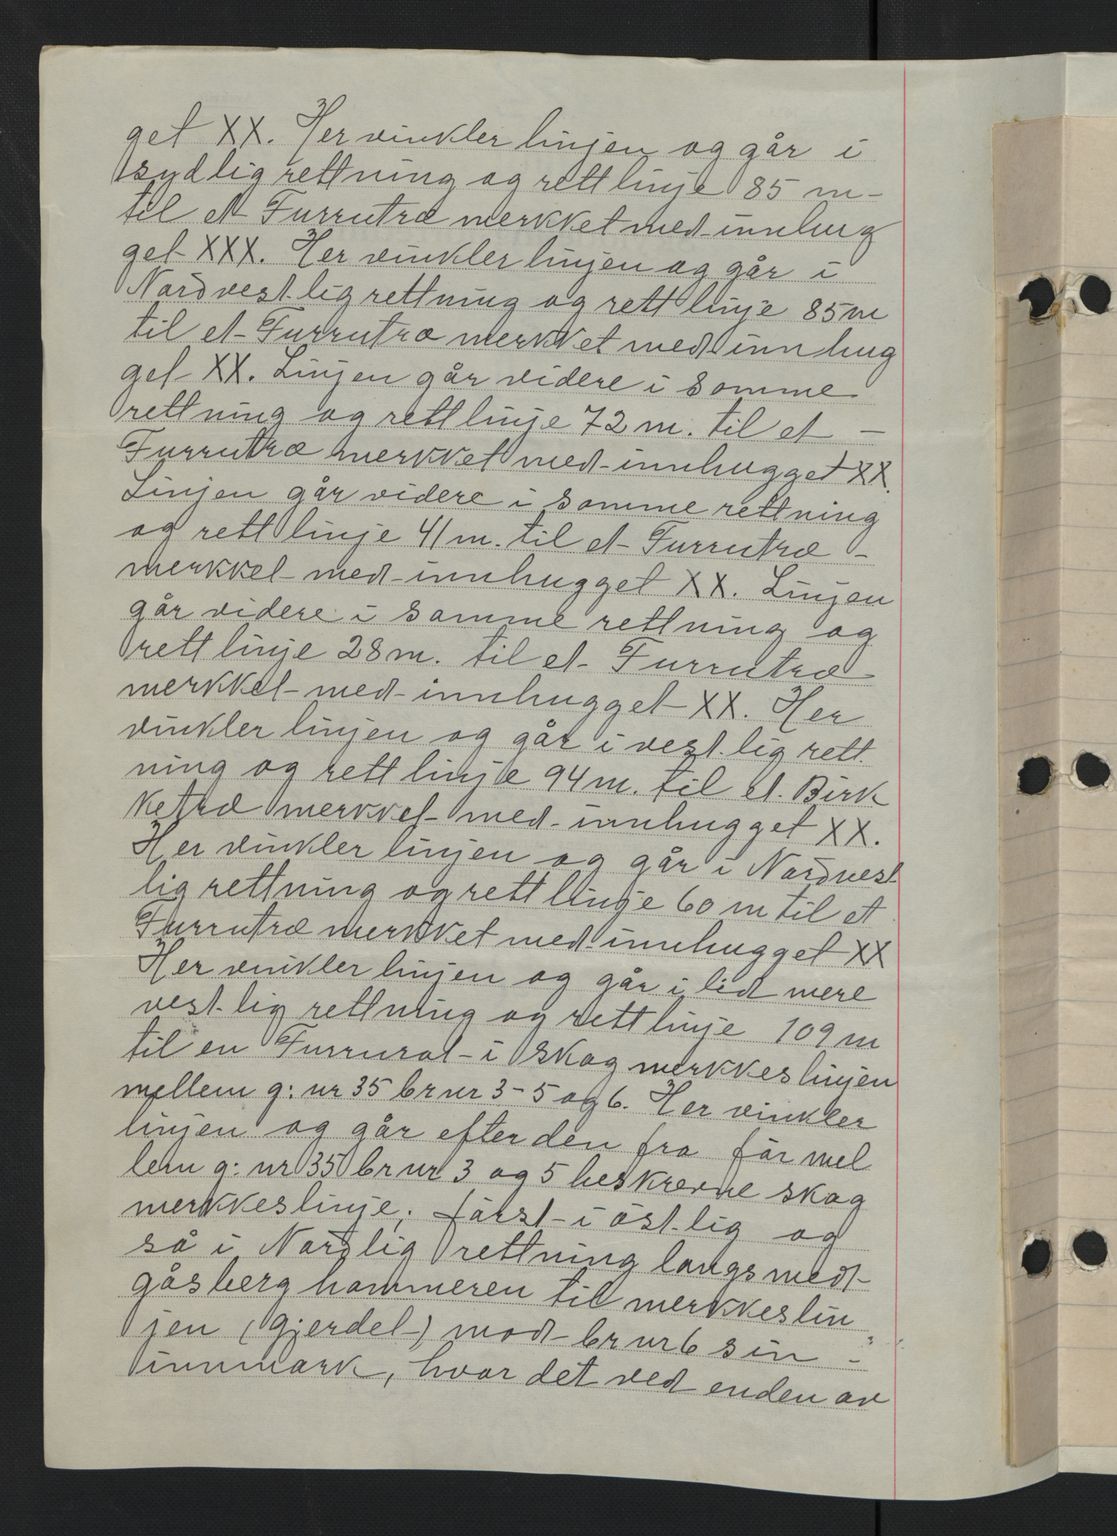 get XX. Her vinkler linjen og går i
sydlig rettning og rett linje 85 m -
til et Furrutræ merkket med innhug
get XXX. Her vinkler linjen og går i
Nordvestlig rettning og rett linje 85 m
til et Furrutræ merkket med innhug
get XX. Linjen går videre i samme
rettning og rett linje 72 m. til et -
Furrutræ merkket med innhugget XX.
Linjen går videre i samme rettning
og rett linje 41 m. til et Furrutræ -
merkket med innhugget XX. Linjen
går videre i samme rettning og
rett linje 28 m. til et Furrutræ
merkket med innhugget XX. Her
vinkler linjen og går i vestlig rett
ning og rett linje 94 m. til et. Birk
ketræ merkket med innhugget XX.
Her vinkler linjen og går i Nordvest
lig rettning og rett linje 60 m til et
Furrutræ merkket med innhugget XX
Her vinkler linjen og går i lidt mere
vestlig rettning og rett linje 109 m
til en Furrurot i skog merkkeslinjen
mellem g: nr 35 br nr 3 - 5 og 6. Her vinkler
linjen og går efter den fra før mel
lem g: nr 35 br nr 3 og 5 beskrevne skog
merkkeslinje; først i östlig og
så i Nordlig rettning langs med
gåsberghammeren til merkkeslin
jen (gjerdet) mod br nr 6 sin -
innmark, hvor det ved enden av